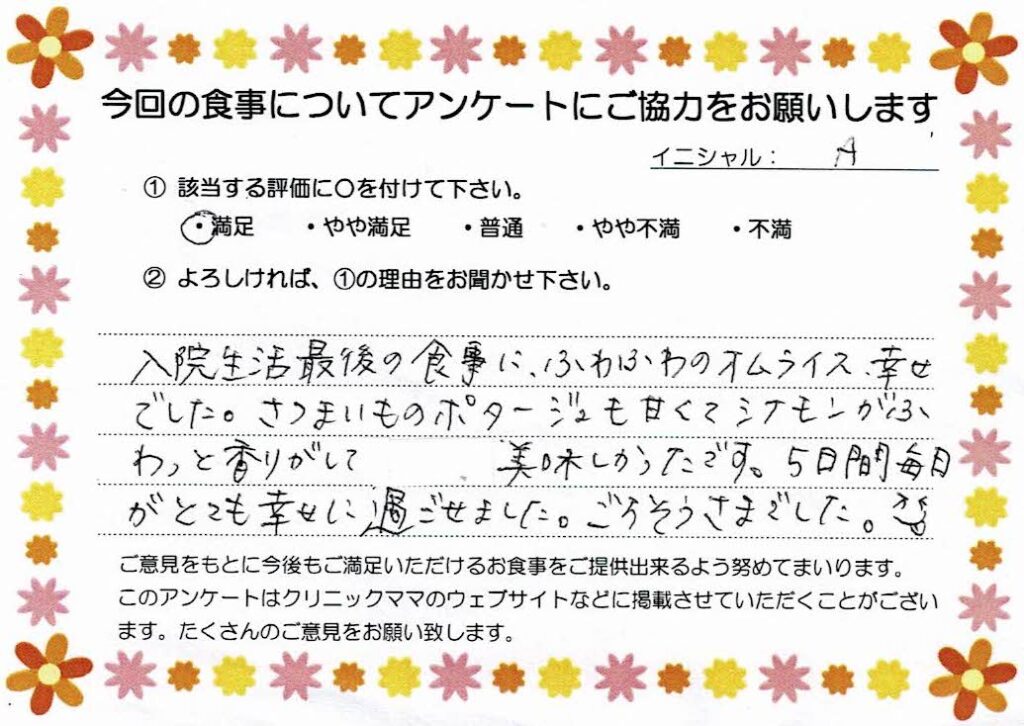 今回の食事についてアンケートにご協力をお願いします
イニシャル： A
① 該当する評価に〇を付けて下さい。
・満足 ・やや満足 ・普通 ・やや不満 ・不満
② よろしければ、①の理由をお聞かせ下さい。
入院生活最後の食事に、ふわふわのオムライス、幸せ
でした。さつまいものポタージュも甘くてシナモンがふ
わっと香りがして 美味しかったです。5日間毎日
がとても幸せに過ごせました。ごちそうさまでした。
ご意見をもとに今後もご満足いただけるお食事をご提供出来るよう努めてまいります。
このアンケートはクリニックママのウェブサイトなどに掲載させていただくことがござい
ます。たくさんのご意見をお願い致します。